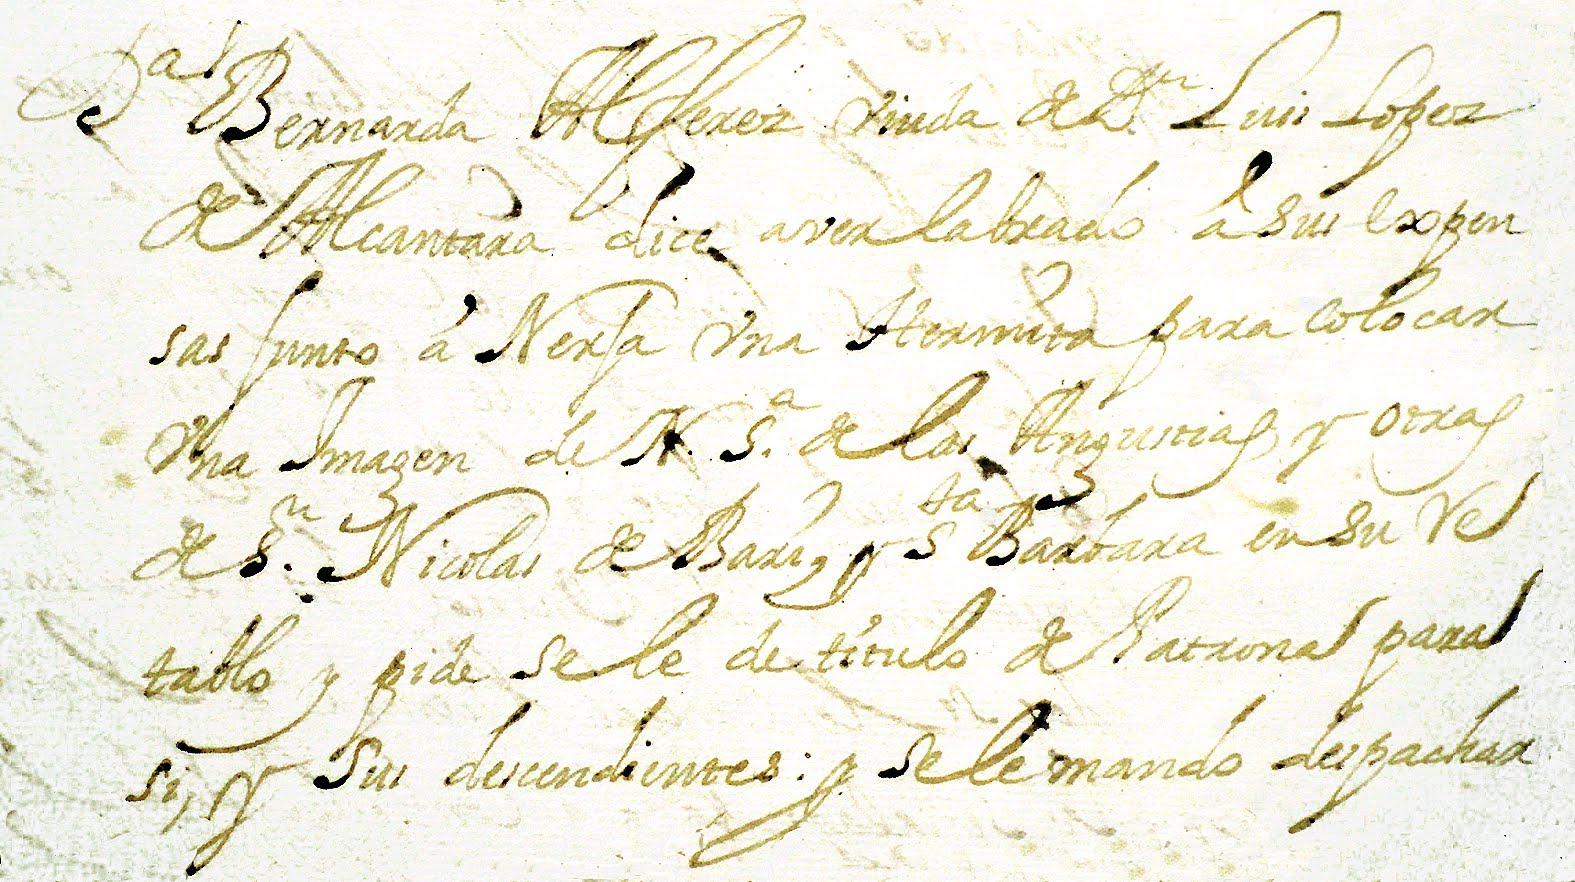 D.ª Bernarda Alferez viuda de D.ⁿ Luis Lopez
de Alcantara dice aver labrado á sus expen
sas junto á Nerja vna Hermita para colocar
vna Imagen de N. S.ª de las Angustias, y otras
de S.ⁿ Nicolas de Bari, y Sta Barbara en su re
tablo y pide se le de título de Patrona para
si, y sus descendientes: y se le mando despachar